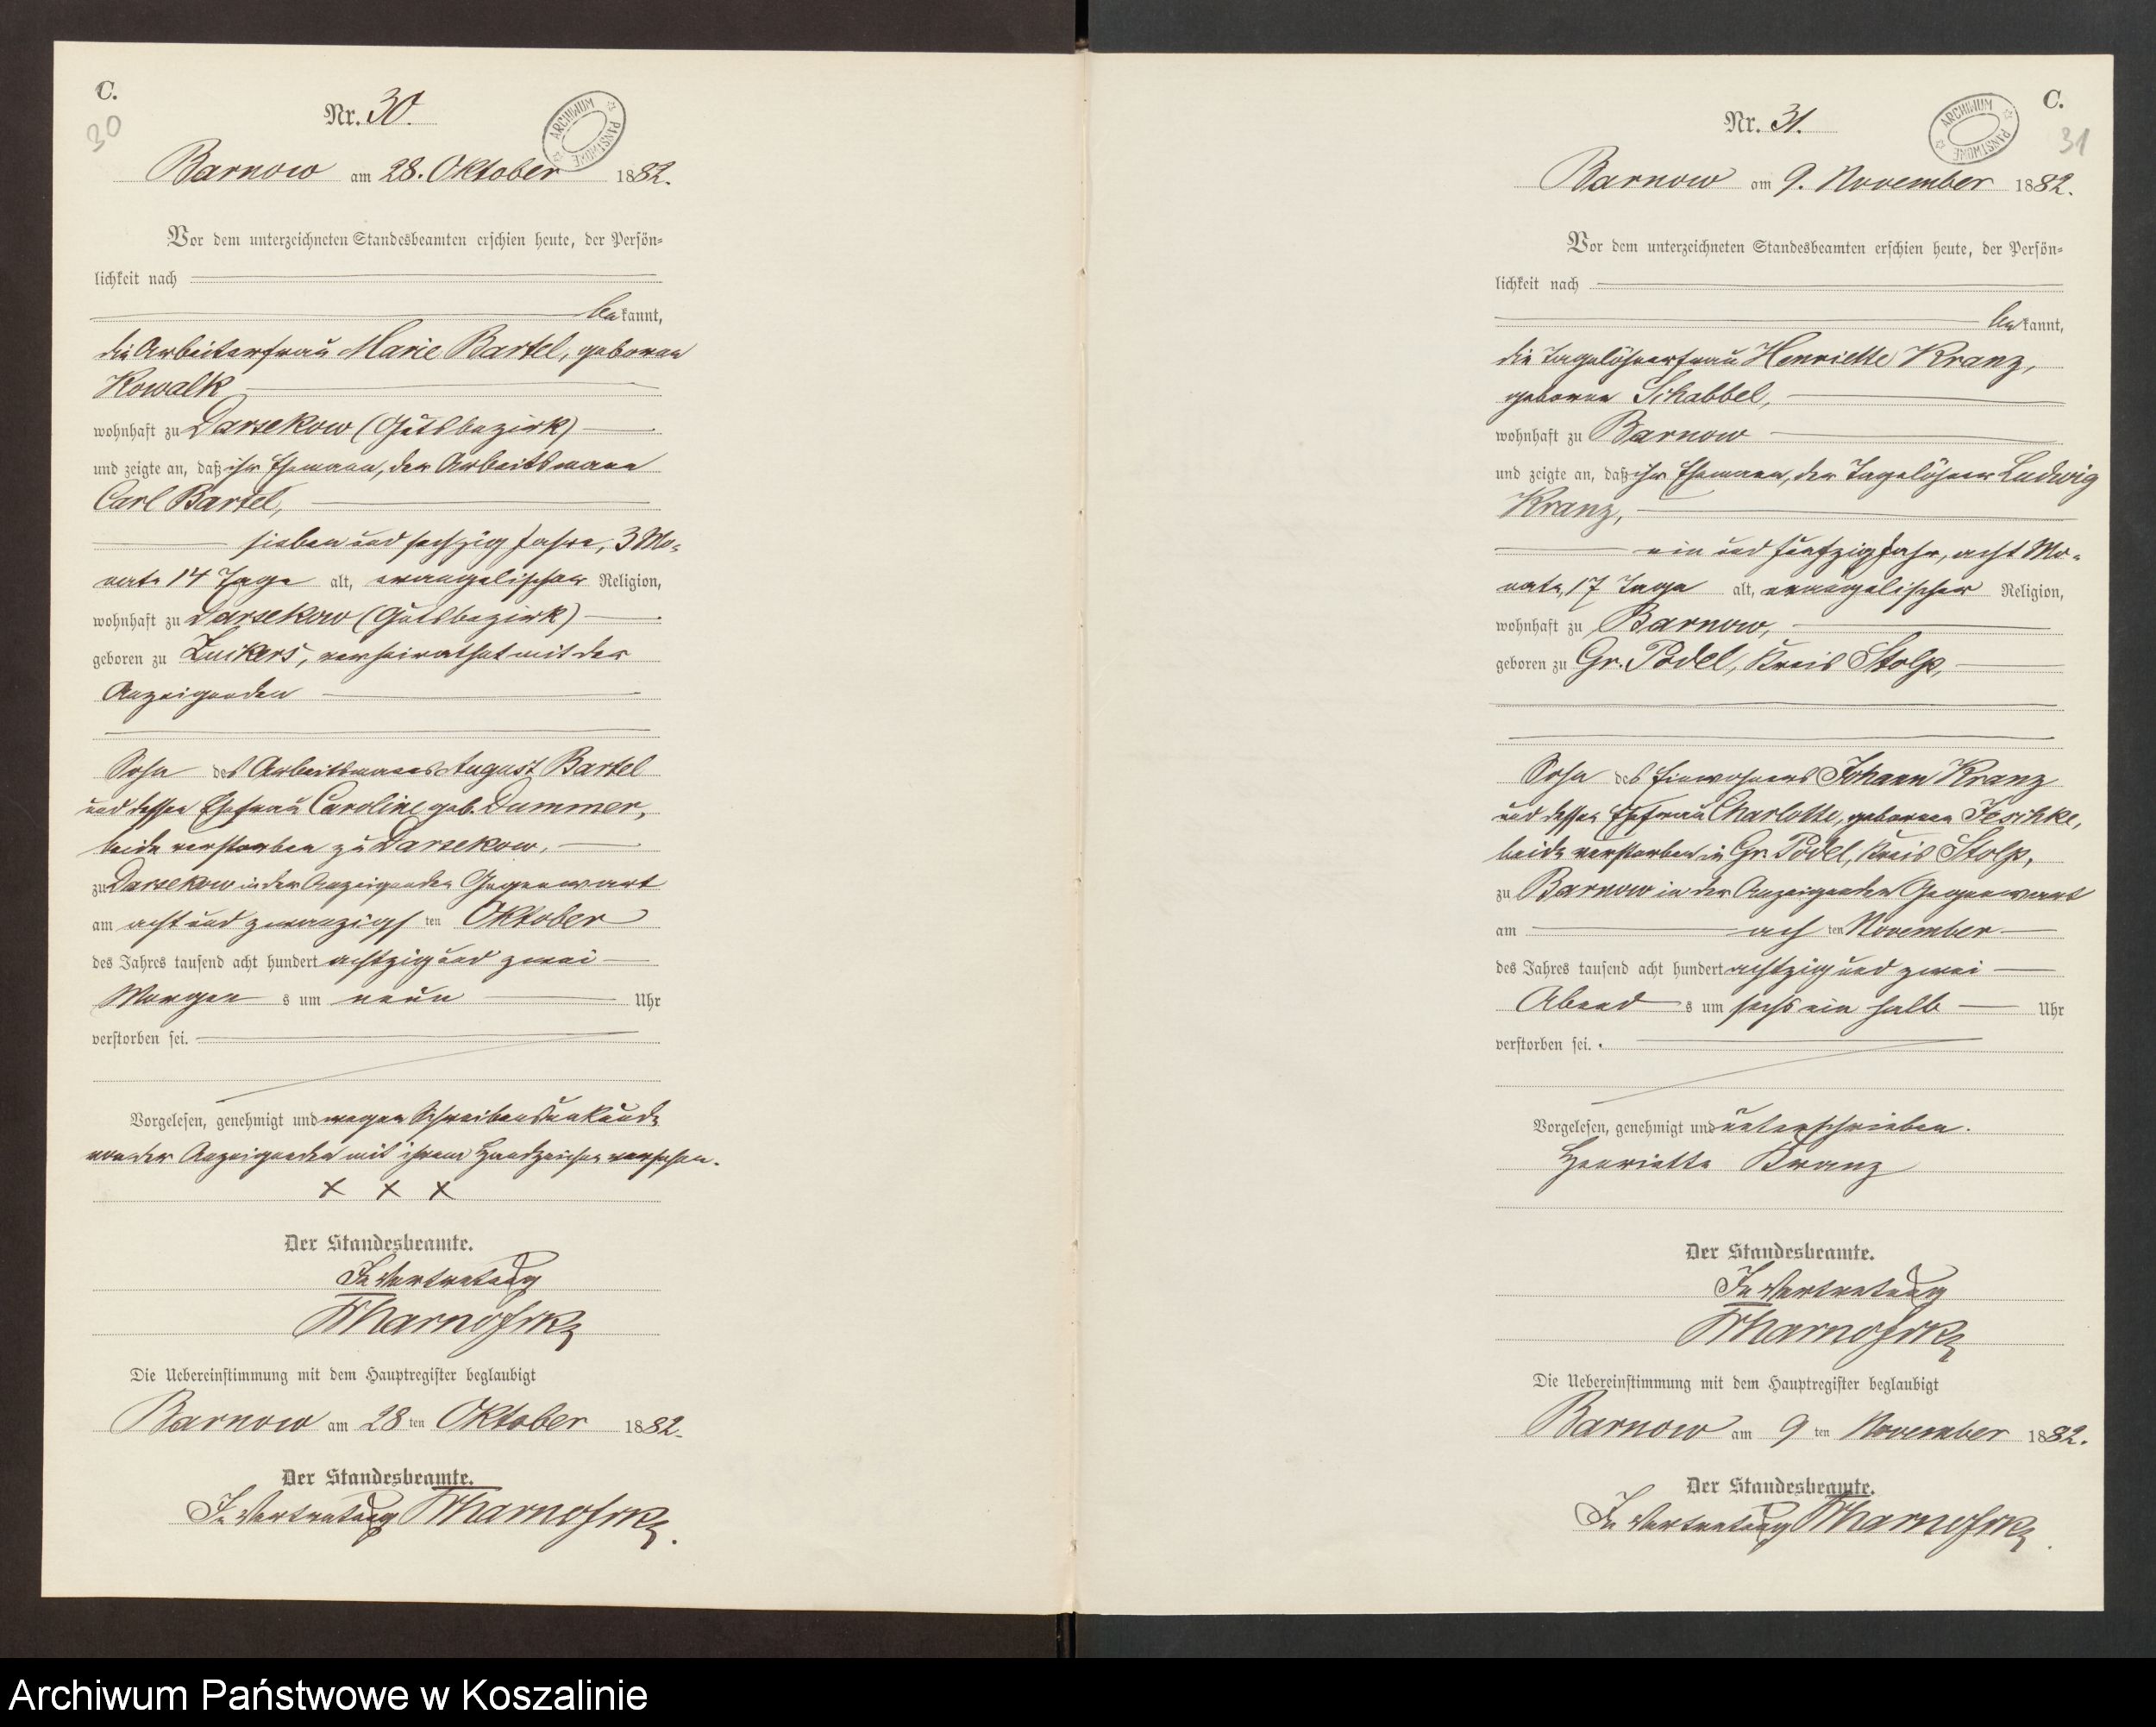 C.
30
Nr. 30.
ARCHIWUM PAŃSTWOWE
Barnow am 28. Oktober 1882.
Vor dem unterzeichneten Standesbeamten erschien heute, der Persön-
lichkeit nach
bekannt,
die Arbeiterfrau Marie Bartel, geborene
Kowalk
wohnhaft zu Darsekow (Gutsbezirk)
und zeigte an, daß ihr Ehemann, der Arbeitsmann
Carl Bartel,
sieben und sechzig Jahre, 3 Mo-
nate 14 Tage alt, evangelischer Religion,
wohnhaft zu Darsekow (Gutsbezirk)
geboren zu Zuckers, verheirathet mit der
Anzeigenden
Sohn des Arbeitsmanns August Bartel
und dessen Ehefrau Caroline geb. Dummer,
beide verstorben zu Darsekow,
zu Darsekow in der Anzeigenden Gegenwart
am acht und zwanzigsten Oktober
des Jahres tausend acht hundert achtzig und zwei
Morgens um neun Uhr
verstorben sei.
Vorgelesen, genehmigt und wegen Schreibensunkunde
von der Anzeigenden mit ihrem Handzeichen versehen.
x x x
Der Standesbeamte.
In Vertretung
Die Uebereinstimmung mit dem Hauptregister beglaubigt
Barnow am 28ten Oktober 1882.
Der Standesbeamte.
In Vertretung
C.
31
Nr. 31.
ARCHIWUM PAŃSTWOWE
Barnow am 9. November 1882.
Vor dem unterzeichneten Standesbeamten erschien heute, der Persön-
lichkeit nach
bekannt,
die Tagelöhnerfrau Henriette Kranz,
geborene Schabbel,
wohnhaft zu Barnow
und zeigte an, daß ihr Ehemann, der Tagelöhner Ludwig
Kranz,
ein und fünfzig Jahr, acht Mo-
nate, 17 Tage alt, evangelischer Religion,
wohnhaft zu Barnow,
geboren zu Gr. Podel, Kreis Stolp,
Sohn des Einwohners Johann Kranz
und dessen Ehefrau Charlotte, geborenen Jeschke,
beide verstorben in Gr. Podel, Kreis Stolp,
zu Barnow in der Anzeigenden Gegenwart
am achten November
des Jahres tausend acht hundert achtzig und zwei
Abends um sechs ein halb Uhr
verstorben sei.
Vorgelesen, genehmigt und unterschrieben.
Henriette Kranz
Der Standesbeamte.
In Vertretung
Die Uebereinstimmung mit dem Hauptregister beglaubigt
Barnow am 9ten November 1882.
Der Standesbeamte.
In Vertretung
Archiwum Państwowe w Koszalinie